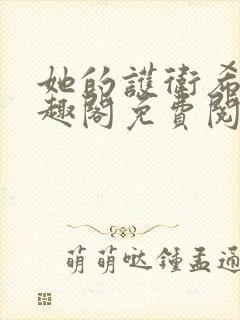 她的護衛希
趣閣免費閱
萌萌哒鍾孟通